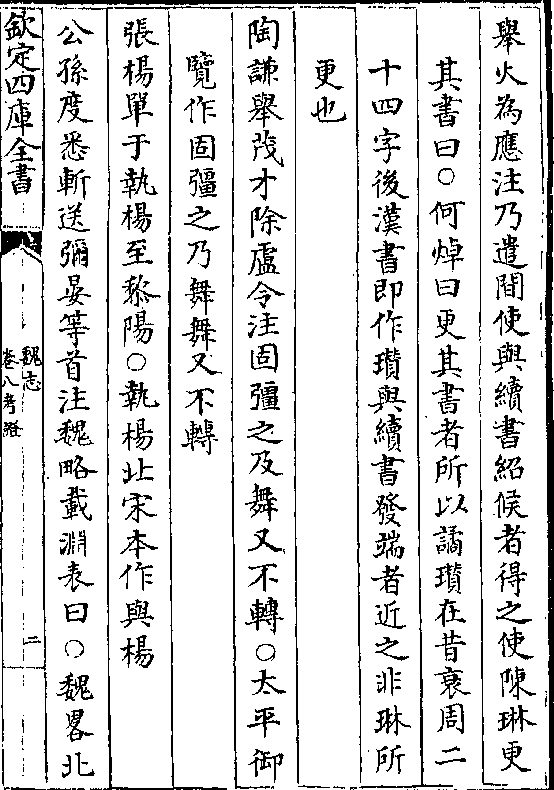 舉火為應注乃遣間使與續書紹候者得之使陳琳更
其書曰○何焯曰更其書者所以譎瓚在昔衰周二
十四字後漢書即作瓚與續書發端者近之非琳所
更也
陶謙舉茂才除盧令注固彊之及舞又不轉○太平御
覽作固彊之乃舞舞又不轉
張楊單于執楊至黎陽○執楊北宋本作與楊
公孫度悉斬送彌晏等首注魏略載淵表曰○魏畧北
欽定四庫全書
魏志
卷八考證
二